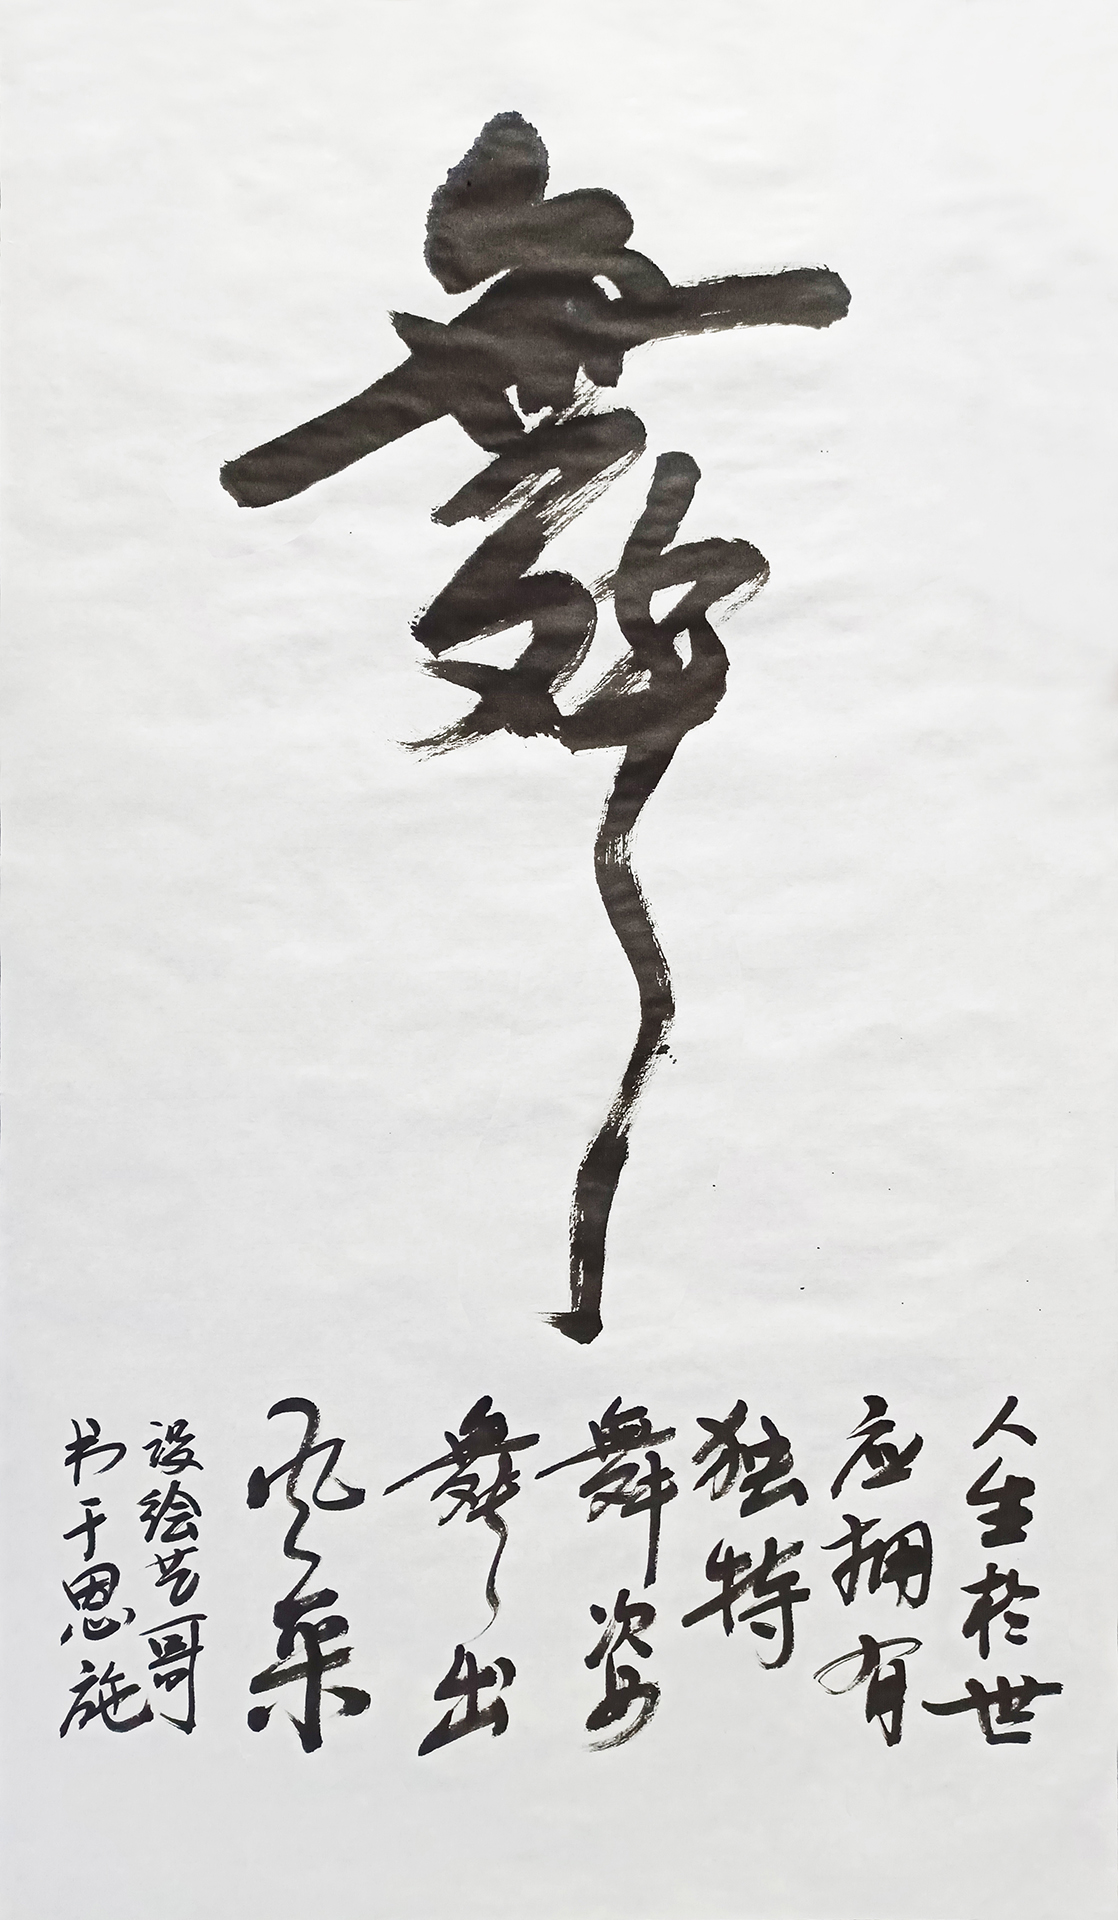 舞
人生於世
应拥有
独特
舞姿
舞出
风采
设绘艺哥
书于恩施